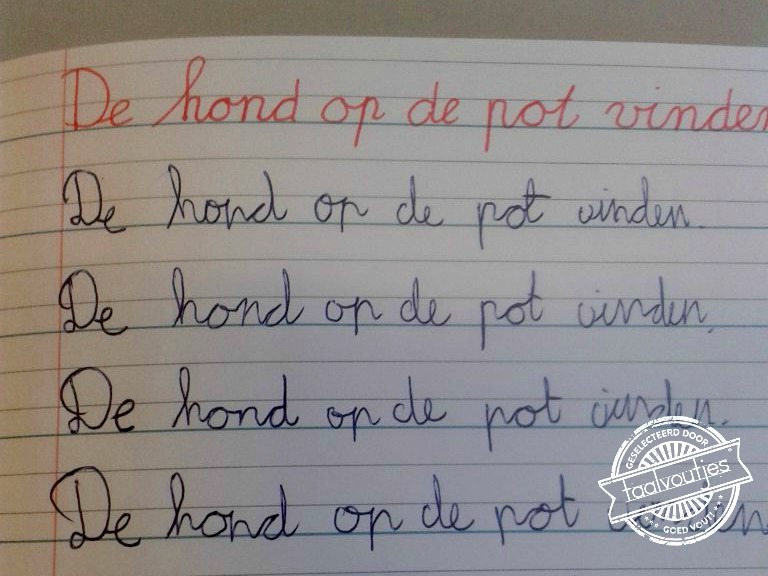 De hond op de pot vinden
De hond op de pot vinden.
De hond op de pot vinden.
De hond op de pot vinden.
De hond op de pot
GESELECTEERD DOOR
taalvoutjes
GOED VOUT!